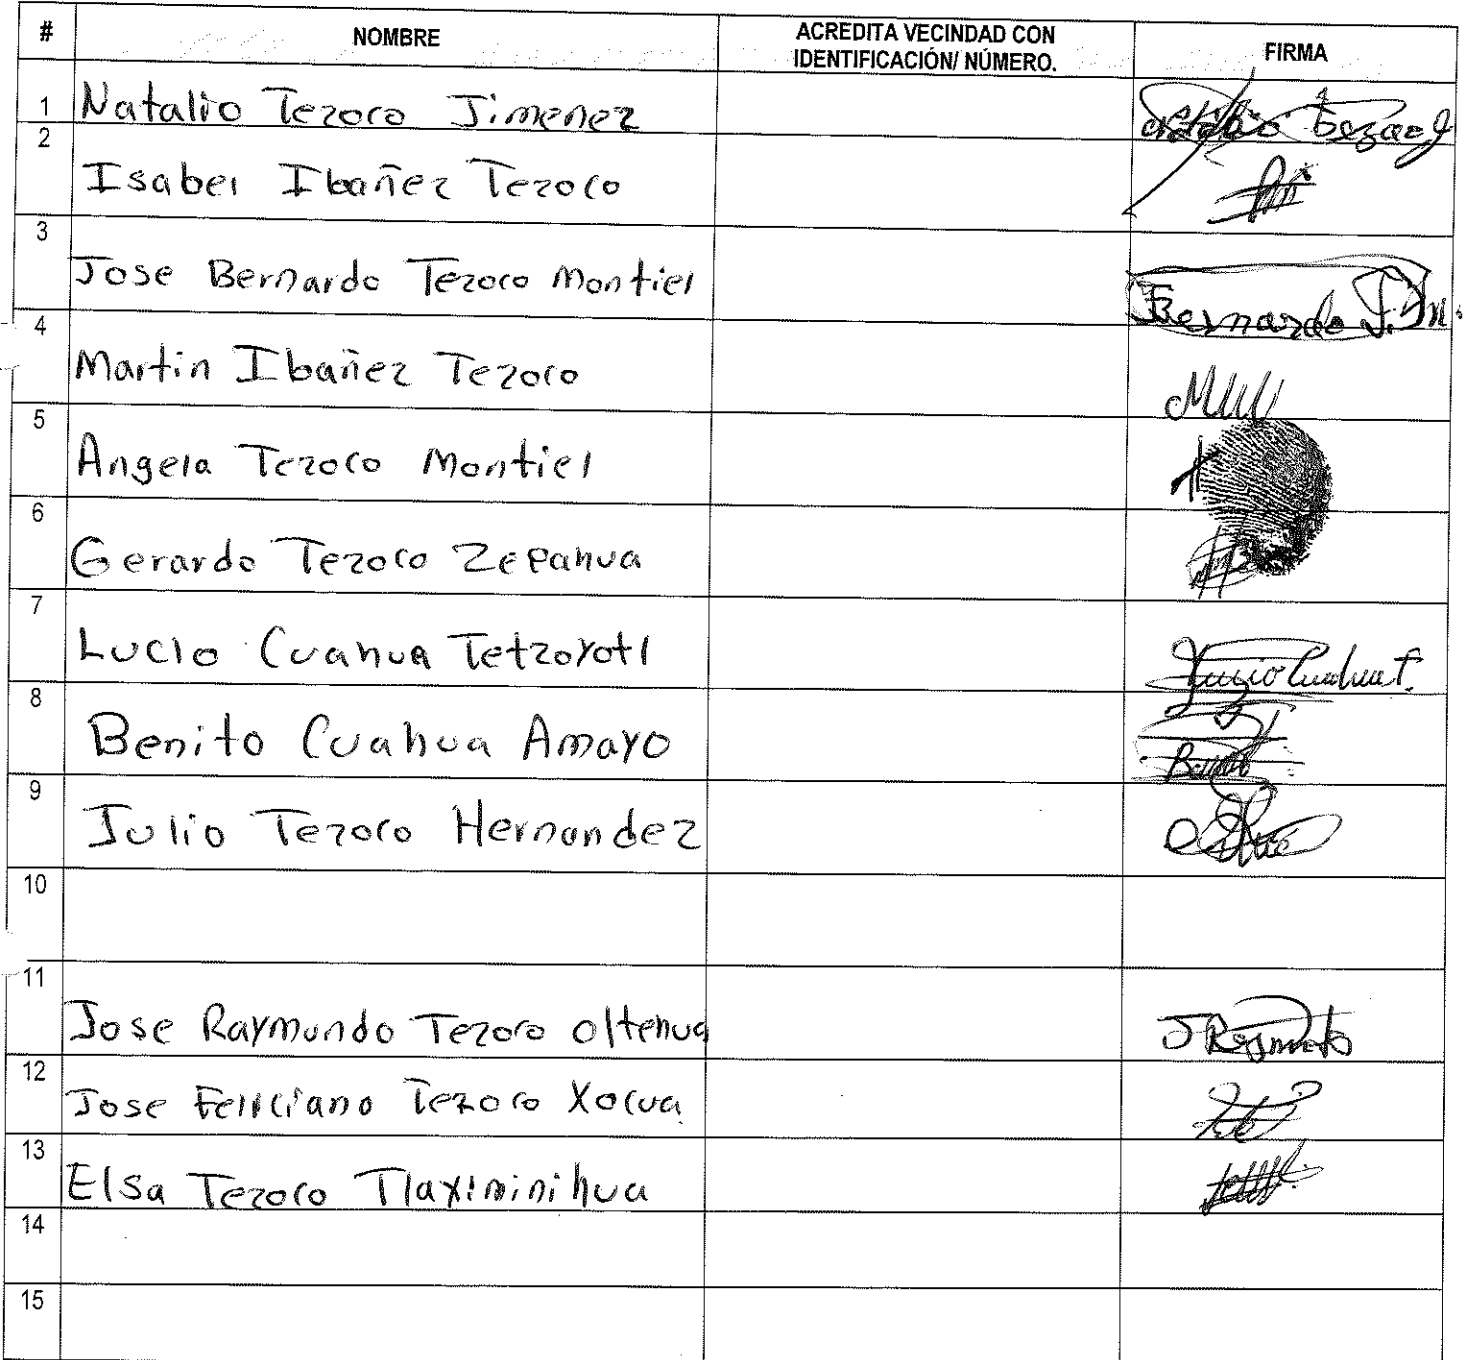 # NOMBRE ACREDITA VECINDAD CON IDENTIFICACIÓN/ NÚMERO. FIRMA
1 Natalio Tezoco Jimenez
2 Isabel Ibañez Tezoco
3 Jose Bernardo Tezoco Montiel Bernardo T. M.
4 Martin Ibañez Tezoco
5 Angela Tezoco Montiel
6 Gerardo Tezoco Zepahua
7 Lucio Cuahua Tetzoyotl Lucio Cuahua T.
8 Benito Cuahua Amayo
9 Julio Tezoco Hernandez
10
11 Jose Raymundo Tezoco Oltehua
12 Jose Feliciano Tezoco Xocua
13 Elsa Tezoco Tlaximinihua
14
15